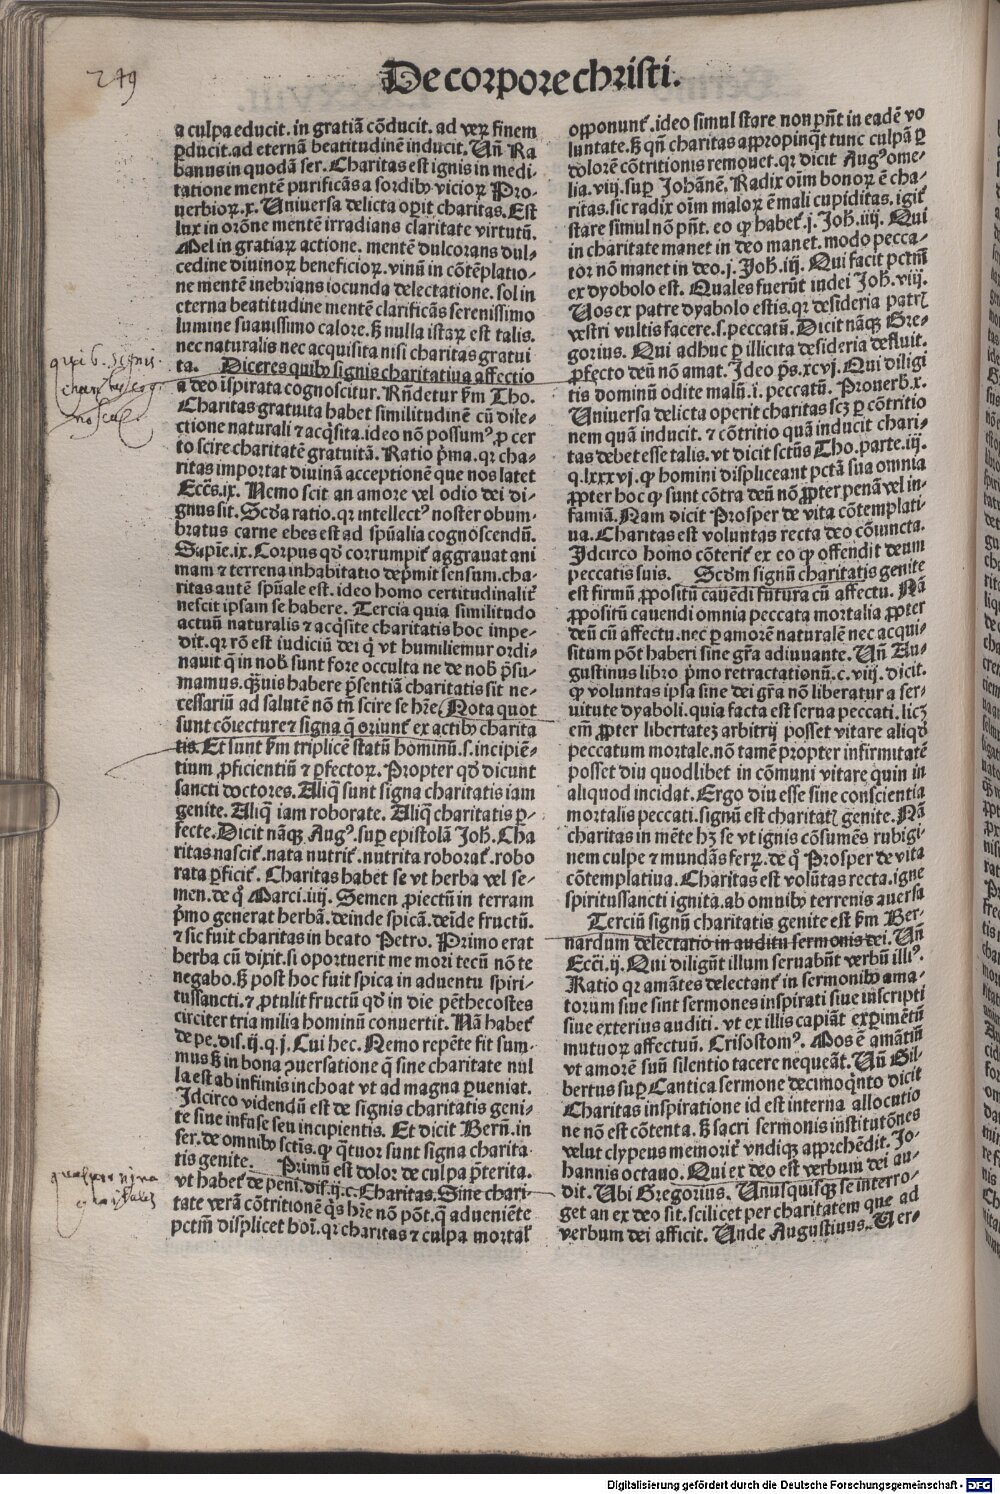 249
De corpore christi.
a culpa educit. in gratiã cõducit. ad veꝝ finem
ꝑducit. ad eternã beatitudinẽ inducit. Uñ Ra
banus in quodã ser. Charitas est ignis in medi-
tatione mentẽ purificãs a sordibꝰ vicioꝝ Pro-
uerbioꝝ.x. Uniuersa delicta oꝑit charitas. Est
lux in orõne mentẽ irradians claritate virtutũ.
Mel in gratiaꝝ actione. mentẽ dulcorans dul-
cedine diuinoꝝ beneficioꝝ. vinũ in cõtẽplatio-
ne mentẽ inebrians iocunda delectatione. sol in
eterna beatitudine mentẽ clarificãs serenissimo
lumine suauissimo calore. sꝫ nulla istaꝝ est talis.
nec naturalis nec acquisita nisi charitas gratui
ta. Diceres quibꝰ signis charitatiua affectio
a deo ispirata cognoscitur. Rñdetur ẞm Tho.
Charitas gratuita habet similitudinẽ cũ dile-
ctione naturali ⁊ acq̃sita. ideo nõ possumꝰ ꝓ cer
to scire charitatẽ gratuitã. Ratio p̃ma. qꝛ cha-
ritas importat diuinã acceptionẽ que nos latet
Ecc̃s.ix. Nemo scit an amore vel odio dei di-
gnus sit. Scđa ratio. qꝛ intellectꝰ noster obum-
bratus carne ebes est ad sp̃ualia cognoscendũ.
Sapie.ix. Corpus qđ corrumpit̃ aggrauat ani
mam ⁊ terrena inhabitatio dep̃mit sensum. cha-
ritas autẽ sp̃uale est. ideo homo certitudinalit̃
nescit ipsam se habere. Tercia quia similitudo
actuũ naturalis ⁊ acq̃site charitatis hoc impe-
dit. qꝛ rõ est iudiciũ dei q̃ vt humiliemur ordi-
nauit q̃ in nob̃ sunt fore occulta ne de nob̃ p̃su-
mamus. q̃uis habere p̃sentiã charitatis sit ne-
cessariũ ad salutẽ nõ tñ scire se hr̃e. Nota quot
sunt cõiecture ⁊ signa q̃ oriunt̃ ex actibꝰ charita
tis. Et sunt ẞm triplicẽ statũ hominũ. s. incipiẽ-
tium ꝓficientiũ ⁊ ꝑfectoꝝ. Propter qđ dicunt
sancti doctores. Aliq̃ sunt signa charitatis iam
genite. Aliq̃ iam roborate. Aliq̃ charitatis ꝑ-
fecte. Dicit nãqꝫ Augꝰ. suꝑ epistolã Joh̃. Cha
ritas nascit̃. nata nutrit̃. nutrita roborat̃. robo
rata ꝑficit̃. Charitas habet se vt herba vel se-
men. de q̃ Marci.iiij. Semen ꝓiectũ in terram
p̃mo generat herbã. deinde spicã. deĩde fructũ.
⁊ sic fuit charitas in beato Petro. Primo erat
herba cũ dixit. si oportuerit me mori tecũ nõ te
negabo. sꝫ post hoc fuit spica in aduentu spiri-
tussancti. ⁊ ꝓtulit fructũ qđ in die pẽthecostes
circiter tria milia hominũ conuertit. Nã habet̃
de pe. dis.ij. q.j. Cui hec. Nemo repẽte fit sum-
mus sꝫ in bona ꝯuersatione q̃ sine charitate nul
la est ab infimis inchoat vt ad magna ꝑueniat.
Idcirco videndũ est de signis charitatis geni-
te siue infuse seu incipientis. Et dicit Berñ. in
ser. de omnibꝰ sctĩs. qꝙ q̃tuor sunt signa charita-
tis genite. Primũ est dolor de culpa p̃terita.
vt habet̃ de peni. dis.ij.c. Charitas. Sine chari-
tate verã cõtritionẽ q̃s hr̃e nõ põt. q̃ adueniẽte
pctm̃ displicet hoĩ. qꝛ charitas ⁊ culpa mortal̃
opponunt̃. ideo simul stare non pñt in eadẽ vo
luntate. sꝫ qñ charitas appropinqt̃ tunc culpã ꝑ
dolorẽ cõtritionis remouet. qꝛ dicit Augꝰ ome-
lia.viij. suꝑ Johãnẽ. Radix oĩm bonoꝝ ẽ cha-
ritas. sic radix oĩm maloꝝ ẽ mali cupiditas. igit̃
stare simul nõ pñt. eo ꝙ habet̃.j. Joh̃.iiij. Qui
in charitate manet in deo manet. modo pecca-
tor nõ manet in deo.j. Joh̃.iij. Qui facit pctm̃
ex dyobolo est. Quales fuerũt iudei Joh̃.viij.
Uos ex patre dyabolo estis. qꝛ desideria patr̃
vestri vultis facere. s. peccatũ. Dicit nãqꝫ Gre-
gorius. Qui adhuc ꝑ illicita desideria defluit.
ꝓfecto deũ nõ amat. Ideo p̃s.xcvj. Qui diligi
tis dominũ odite malũ. i. peccatũ. Prouerb̃.x.
Uniuersa delicta operit charitas scꝫ ꝑ cõtritio
nem quã inducit. ⁊ cõtritio quã inducit chari-
tas debet esse talis. vt dicit sctũs Tho. parte.iij.
q.lxxxvj. ꝙ homini displiceant pctã sua omnia
ꝓpter hoc ꝙ sunt cõtra deũ nõ ꝓpter penã vel in-
famiã. Nam dicit Prosper de vita cõtemplati-
ua. Charitas est voluntas recta deo cõiuncta.
Idcirco homo cõterit̃ ex eo ꝙ offendit deum
peccatis suis. Scđm signũ charitatis genite
est firmũ ꝓpositũ cauẽdi futura cũ affectu. Nã
ꝓpositũ cauendi omnia peccata mortalia ꝓpter
deũ cũ affectu. nec ꝑ amorẽ naturalẽ nec acqui-
situm põt haberi sine gr̃a adiuuante. Uñ Au-
gustinus libro p̃mo retractationũ.c.viij. dicit.
ꝙ voluntas ipsa sine dei gr̃a nõ liberatur a ser-
uitute dyaboli. quia facta est serua peccati. licꝫ
em̃ ꝓpter libertatez arbitrij posset vitare aliqđ
peccatum mortale. nõ tamẽ propter infirmitatẽ
posset diu quodlibet in cõmuni vitare quin in
aliquod incidat. Ergo diu esse sine conscientia
mortalis peccati. signũ est charitat̃ genite. Nã
charitas in mẽte hꝫ se vt ignis cõsumẽs rubigi-
nem culpe ⁊ mundãs ferꝝ. de q̃ Prosper de vita
cõtemplatiua. Charitas est volũtas recta. igne
spiritussancti ignita. ab omnibꝰ terrenis auersa
Terciũ signũ charitatis genite est ẞm Ber-
nardum delectatio in auditu sermonis dei. Uñ
Ecc̃i.ij. Qui diligũt illum seruabũt verbũ illiꝰ.
Ratio qꝛ amãtes delectant̃ in sermonibꝰ ama-
torum siue sint sermones inspirati siue inscripti
siue exterius auditi. vt ex illis capiãt exꝑimẽtũ
mutuoꝝ affectuũ. Crisostomꝰ. Mos ẽ amãtiũ
vt amorẽ suũ silentio tacere nequeãt. Uñ Gil-
bertus suꝑ Cantica sermone decimoq̃nto dicit
Charitas inspiratione id est interna allocutio
ne nõ est cõtenta. sꝫ sacri sermonis institutõnes
velut clypeus memorit̃ vndiqꝫ apprehẽdit. Jo-
hannis octauo. Qui ex deo est verbum dei au-
dit. Ubi Gregorius. Unusquisqꝫ se interro-
get an ex deo sit. scilicet per charitatem que ad
verbum dei afficit. Unde Augustinus. Uer-